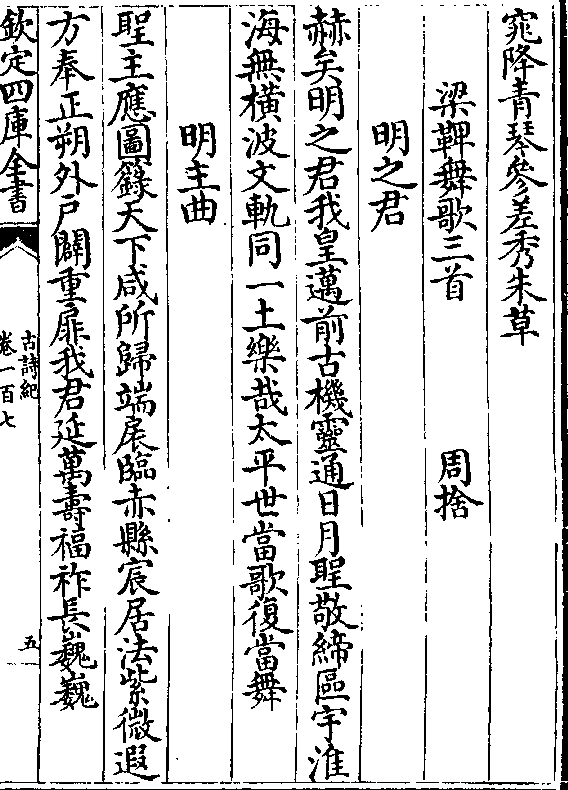 窕降青琴參差秀朱草
梁鞞舞歌三首　周捨
明之君
赫矣明之君我皇邁前古機靈通日月聖敬締區宇淮
海無橫波文軌同一土樂哉太平世當歌復當舞
明主曲
聖主應圖籙天下咸所歸端扆臨赤縣宸居法紫微遐
方奉正朔外戸闢重扉我君延萬壽福祚長巍巍
欽定四庫全書
古詩紀
卷一百七
五